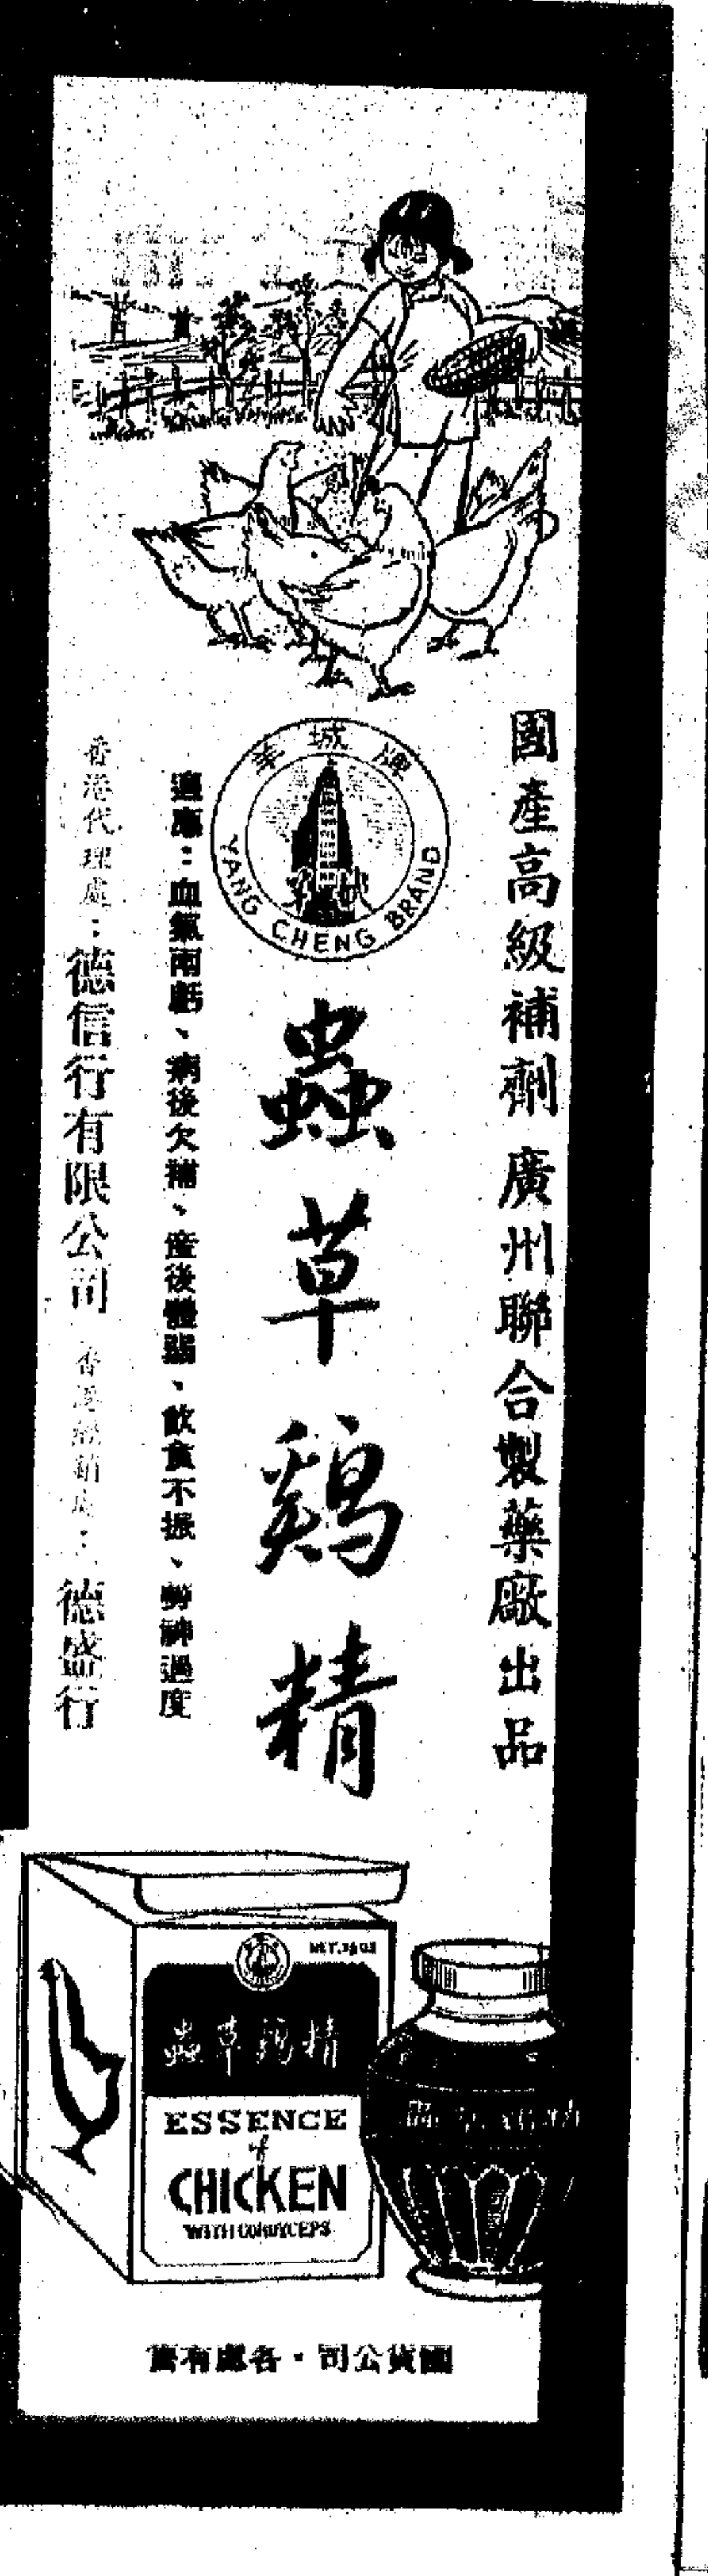 國產高級補劑 廣州聯合製藥廠出品
羊城牌
YANG CHENG BRAND
蟲草鷄精
適應：血氣両虧、病後欠補、產後體弱、飲食不振、勞神過度
香港代理處：德信行有限公司 香港經銷處：德盛行
蟲草鷄精
ESSENCE
of
CHICKEN
WITH CORDYCEPS
國貨公司·各處有售